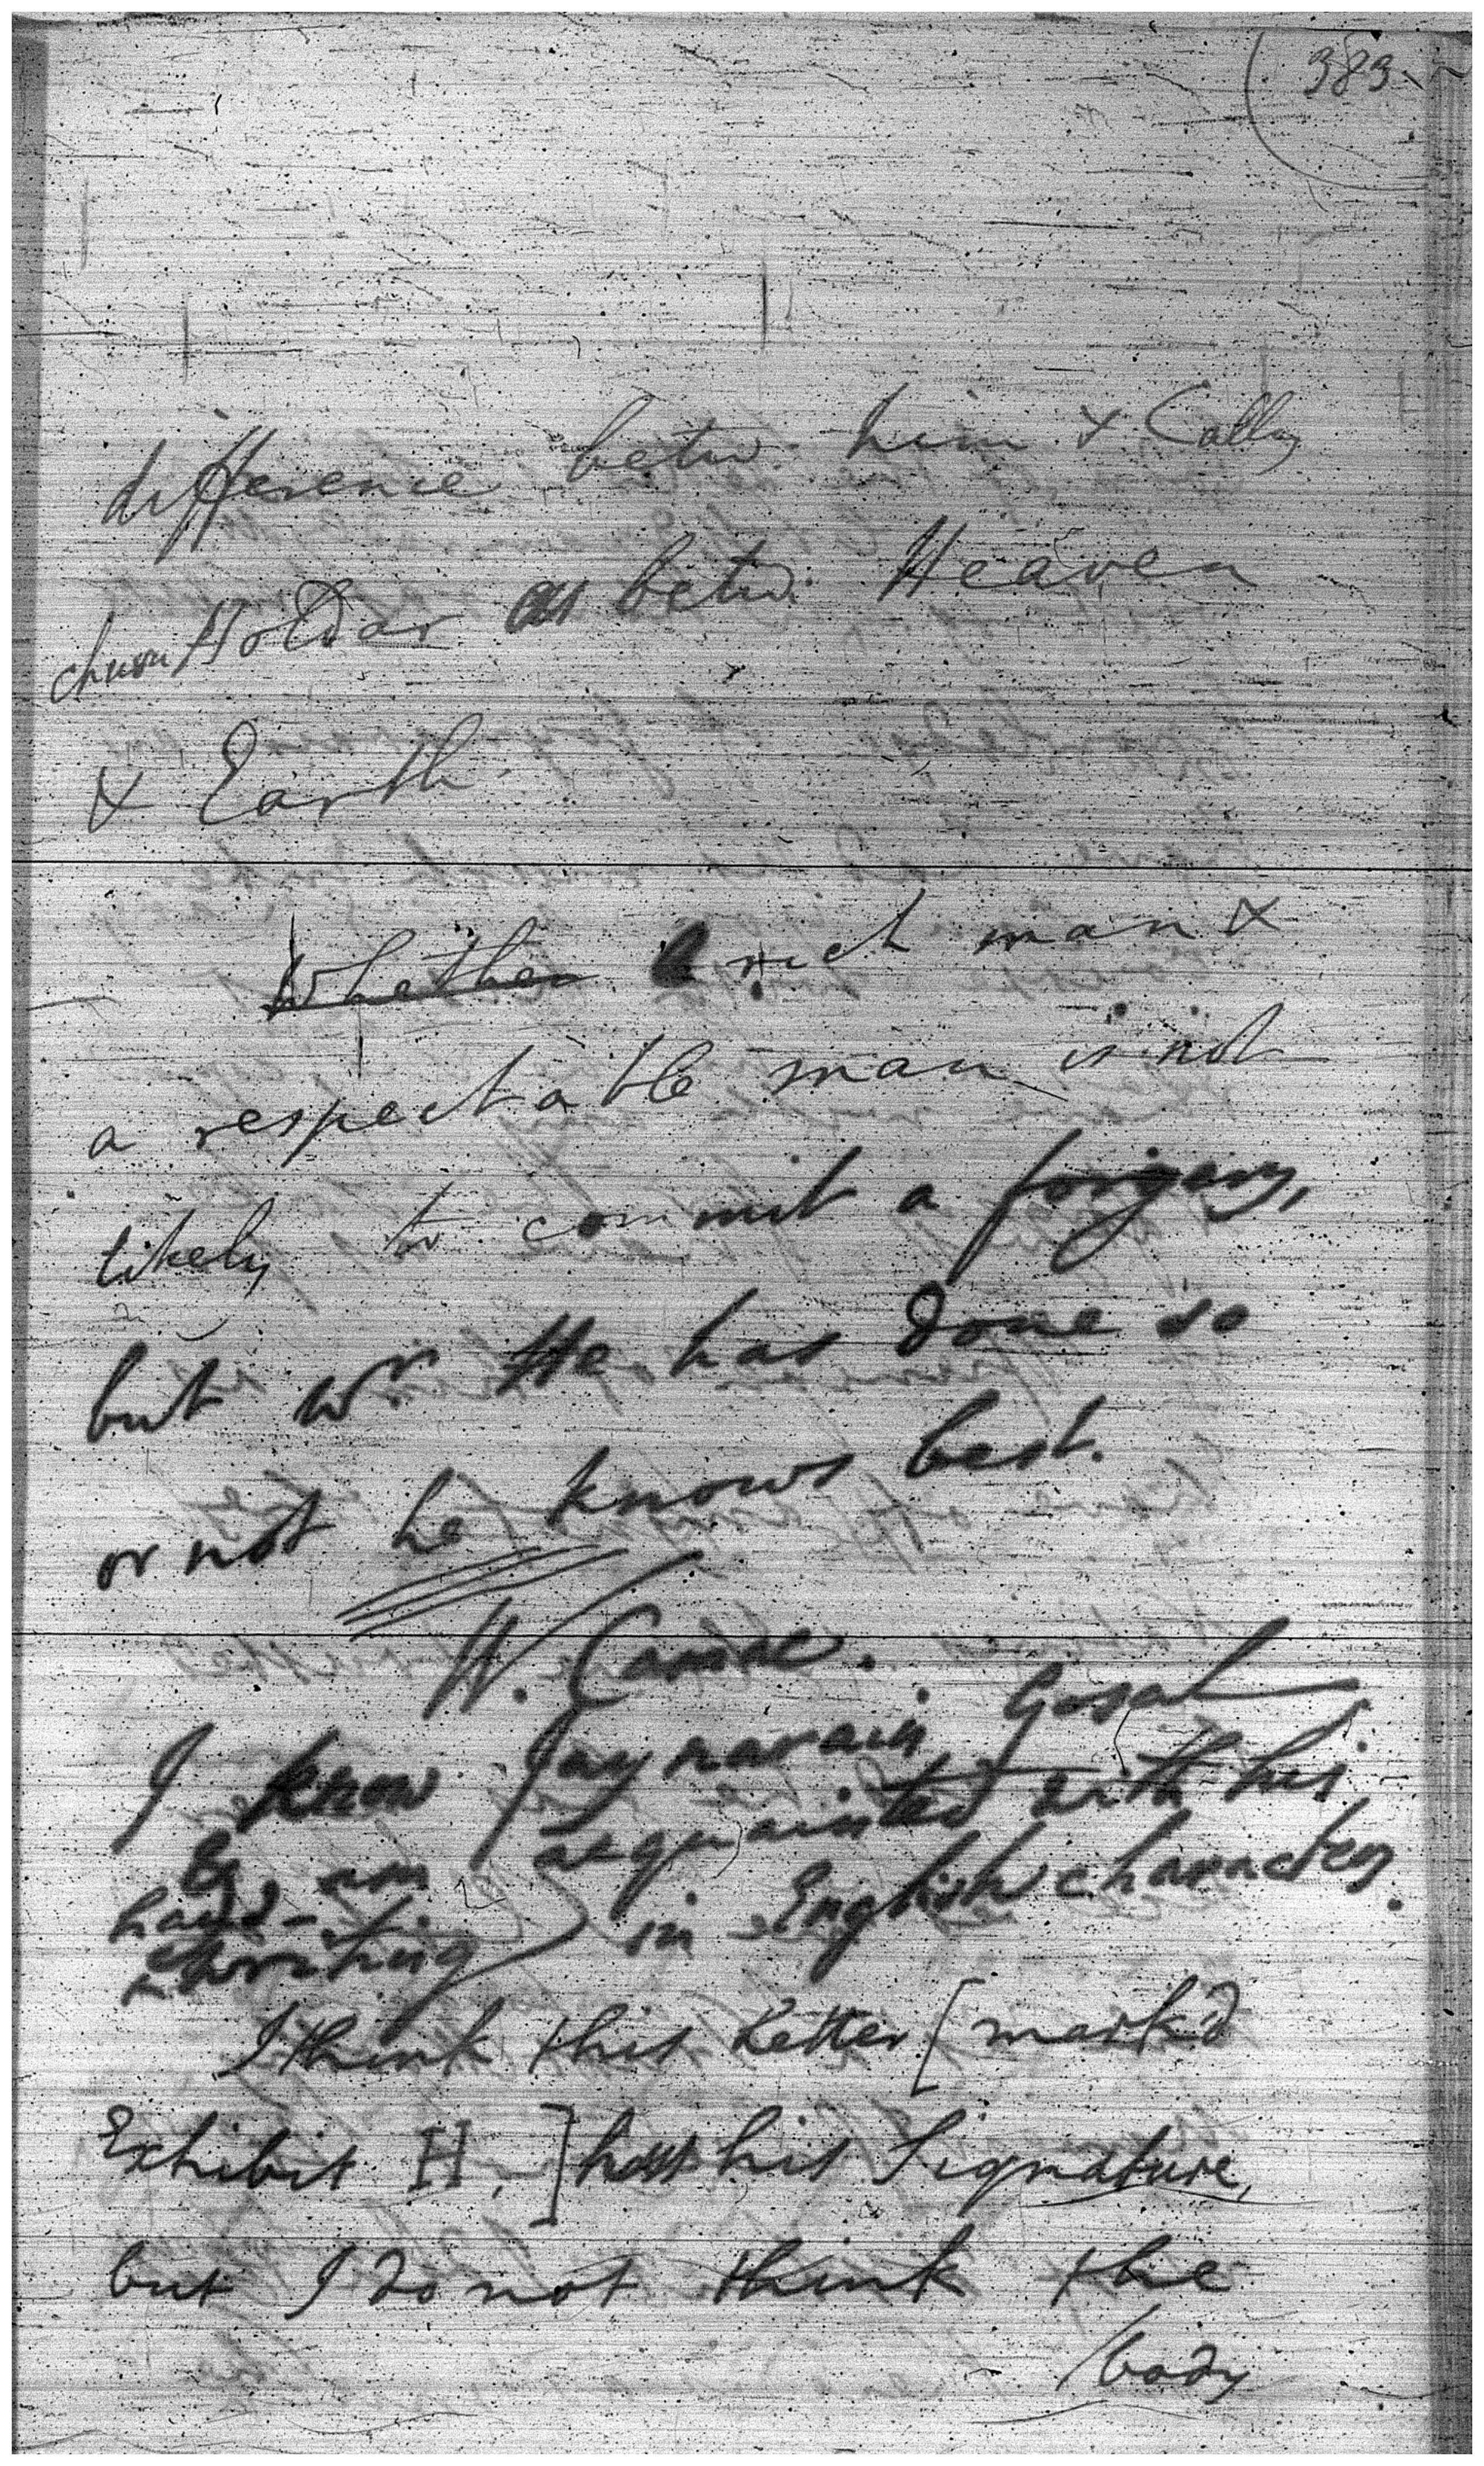 383
difference betw. him & Cally
churn Holdar as betw. Heaven
& Earth.
Whether A rich man &
a respectable man is not
likely to commit a forgery,
but wr. He has done so
or not he knows best.
W. Camac.
I know Jaynarain Gosal
& am acquainted with his
hand-writing in English character.
I think this Letter [mark'd
Exhibit H.] has his Signature,
but I do not think the
body